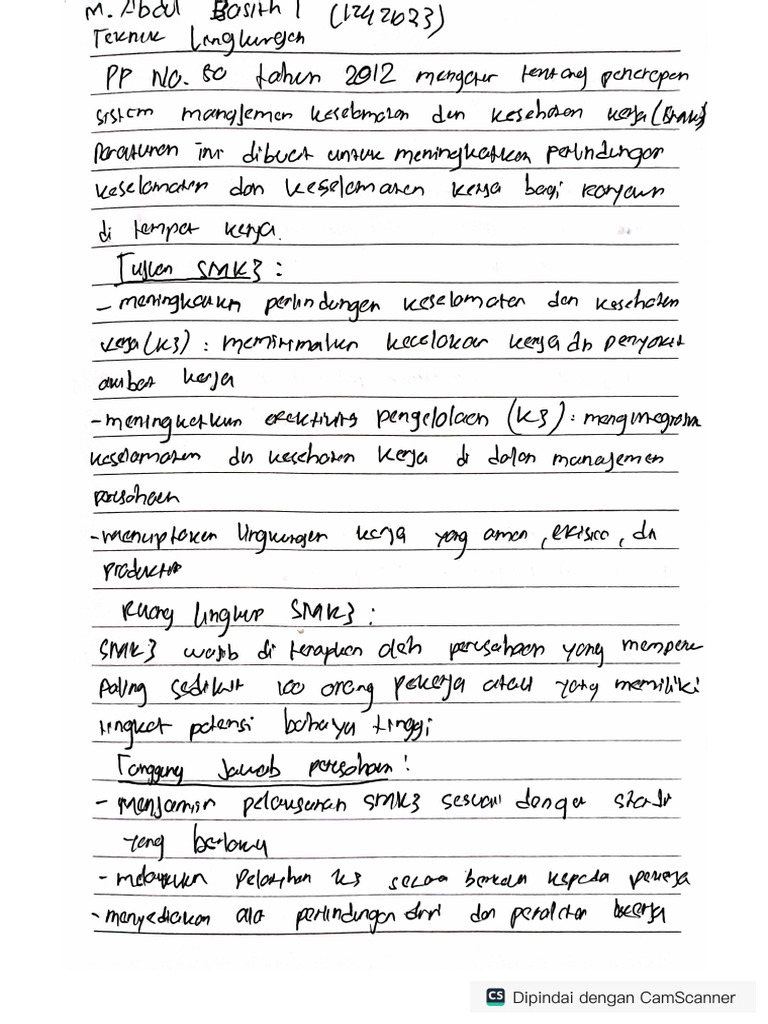 M. Abdul Basith I (1242023)
Teknik Lingkungan
PP No. 50 tahun 2012 mengatur tentang penerapan
sistem manajemen keselamatan dan kesehatan kerja (SMK3)
Peraturan ini dibuat untuk meningkatkan perlindungan
keselamatan dan keselamatan kerja bagi karyawan
di tempat kerja.
Tujuan SMK3 :
- meningkatkan perlindungan keselamatan dan kesehatan
kerja (K3) : meminimalkan kecelakaan kerja dn penyakit
akibat kerja
- meningkatkan efektivitas pengelolaan (K3) : mengintegrasikan
keselamatan dn kesehatan kerja di dalam manajemen
perusahaan
- menciptakan lingkungan kerja yang aman, efisien, dn
produktif
Ruang lingkup SMK3 :
SMK3 wajib di terapkan oleh perusahaan yang
Paling sedikit 100 orang pekerja atau yang memiliki
tingkat potensi bahaya tinggi
Tanggung Jawab perusahaan :
- Menjamin pelaksanaan SMK3 sesuai dengan
yang berlaku
- melakukan Pelatihan K3 secara kepada pekerja
- menyediakan alat perlindungan diri dan peralatan bekerja
CS Dipindai dengan CamScanner